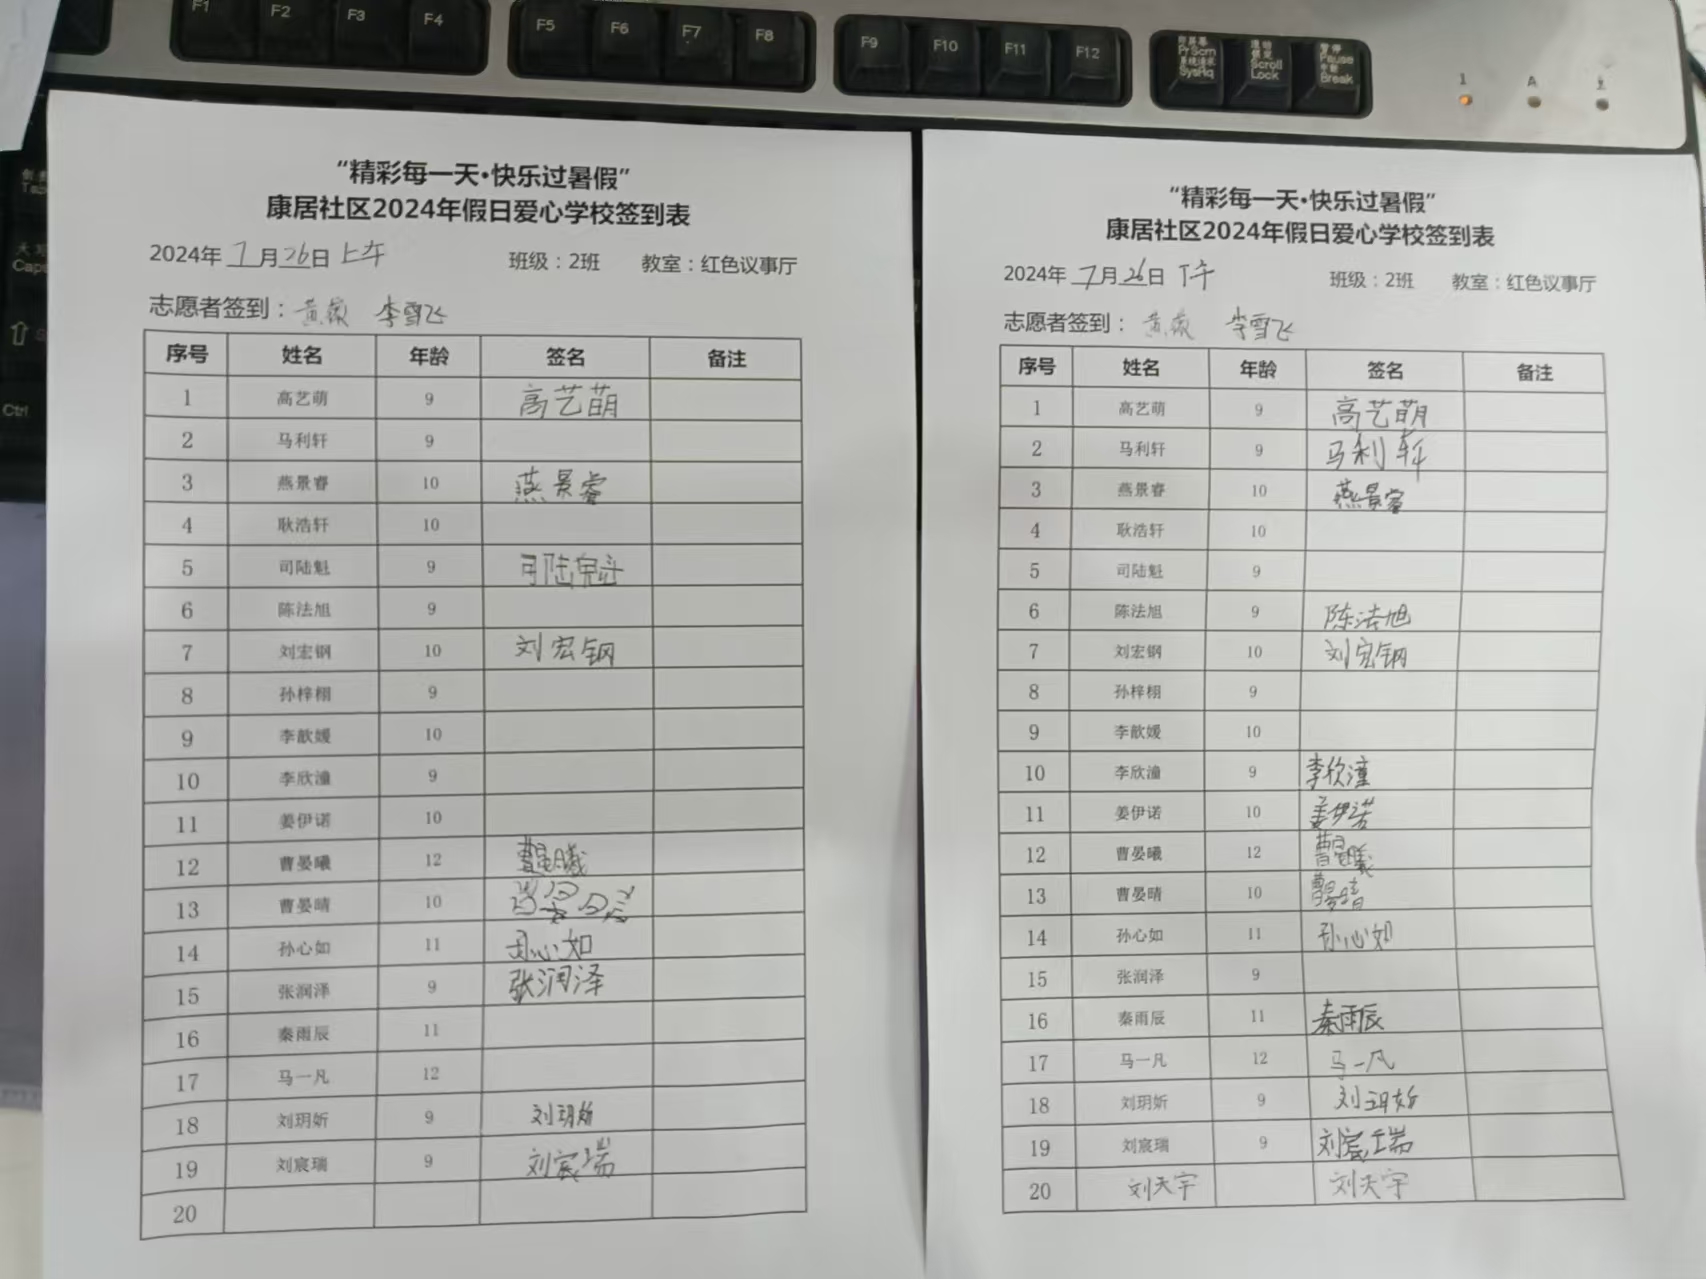 F1 F2 F3 F4 F5 F6 F7 F8 F9 F10 F11 F12
PrScrn
SysRq
Scroll
Lock
Pause
Break
1 A
Ctrl
“精彩每一天·快乐过暑假”
康居社区2024年假日爱心学校签到表
2024年 7月26日 上午 班级：2班 教室：红色议事厅
志愿者签到： 李雪飞
序号 姓名 年龄 签名 备注
1 高艺萌 9 高艺萌
2 马利轩 9
3 燕景睿 10 燕景睿
4 耿浩轩 10
5 司陆魁 9 司陆魁
6 陈法旭 9
7 刘宏钢 10 刘宏钢
8 孙梓栩 9
9 李歆媛 10
10 李欣潼 9
11 姜伊诺 10
12 曹晏曦 12 曹晏曦
13 曹晏晴 10
14 孙心如 11 孙心如
15 张润泽 9 张润泽
16 秦雨辰 11
17 马一凡 12
18 刘玥妡 9 刘玥妡
19 刘宸瑞 9 刘宸瑞
20
“精彩每一天·快乐过暑假”
康居社区2024年假日爱心学校签到表
2024年 7月26日 下午 班级：2班 教室：红色议事厅
志愿者签到： 李雪飞
序号 姓名 年龄 签名 备注
1 高艺萌 9 高艺萌
2 马利轩 9 马利轩
3 燕景睿 10 燕景睿
4 耿浩轩 10
5 司陆魁 9
6 陈法旭 9 陈法旭
7 刘宏钢 10 刘宏钢
8 孙梓栩 9
9 李歆媛 10
10 李欣潼 9 李欣潼
11 姜伊诺 10 姜伊诺
12 曹晏曦 12 曹晏曦
13 曹晏晴 10 曹晏晴
14 孙心如 11 孙心如
15 张润泽 9
16 秦雨辰 11 秦雨辰
17 马一凡 12 马一凡
18 刘玥妡 9 刘玥妡
19 刘宸瑞 9 刘宸瑞
20 刘天宇 刘天宇